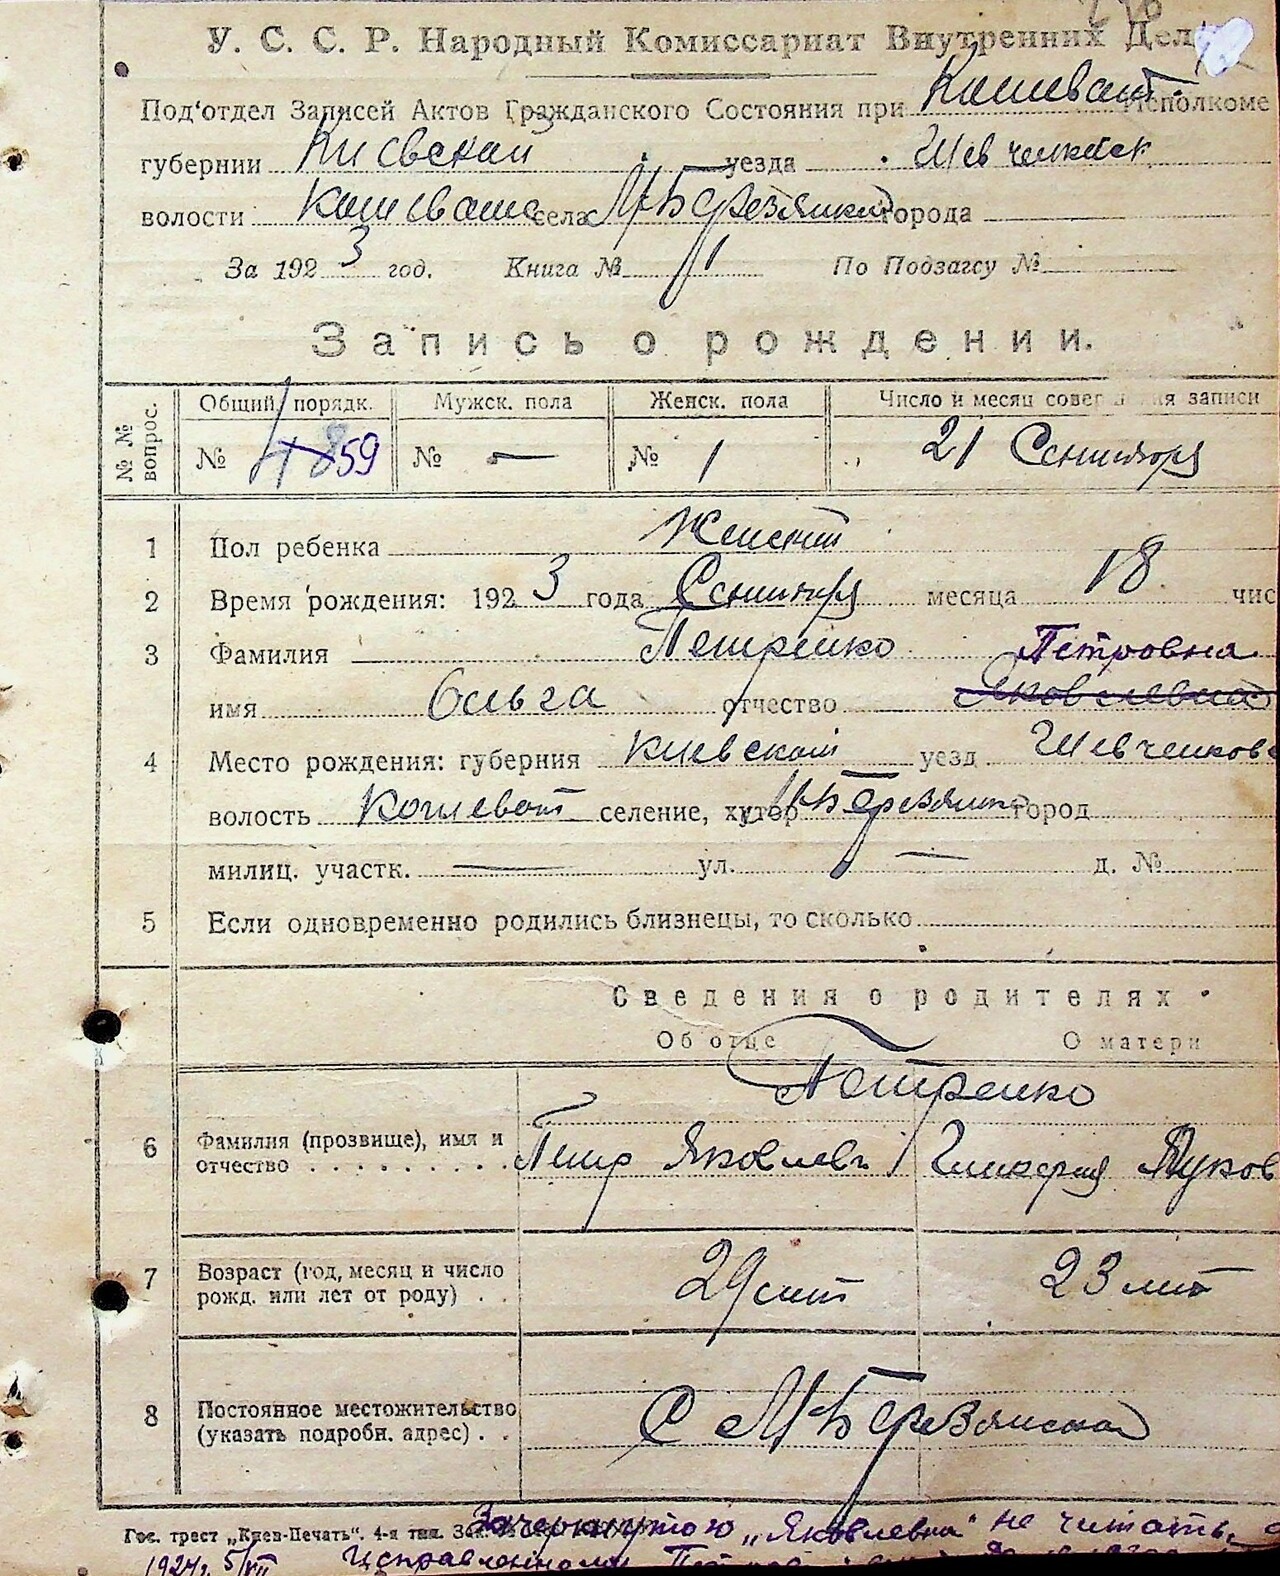 У. С. С. Р. Народный Комиссариат Внутренних Дел
Под'отдел Записей Актов Гражданского Состояния при Кошеват. Исполкоме
губернии Киевской уезда Шевченковск
волости Кошеват села М Березянки города
За 1923 год. Книга № 1 По Подзагсу №
Запись о рождении.
№ № вопрос. Общий порядк. Мужск. пола Женск. пола Число и месяц совершения записи
№ 59 № — № 1 21 Сентября
1 Пол ребенка Женский
2 Время рождения: 1923 года Сентября месяца 18 чис
3 Фамилия Петренко Петровна
имя Ольга отчество Яковлевна
4 Место рождения: губерния Киевской уезд Шевченковс
волость Кошеват селение, хутор М Березянка город
милиц. участк. — ул. — д. №
5 Если одновременно родились близнецы, то сколько
Сведения о родителях
Об отце О матери
Петренко
6 Фамилия (прозвище), имя и
отчество Петр Яковлевъ Гликерия Луков
7 Возраст (год, месяц и число
рожд. или лет от роду) 29 лет 23 лет
8 Постоянное местожительство
(указать подробн. адрес) С М Березянка
Гос. трест „Киев-Печать“. 4-я тип. Зачеркнутою „Яковлевна“ не читать,
1924г. 5/VII Исправленному